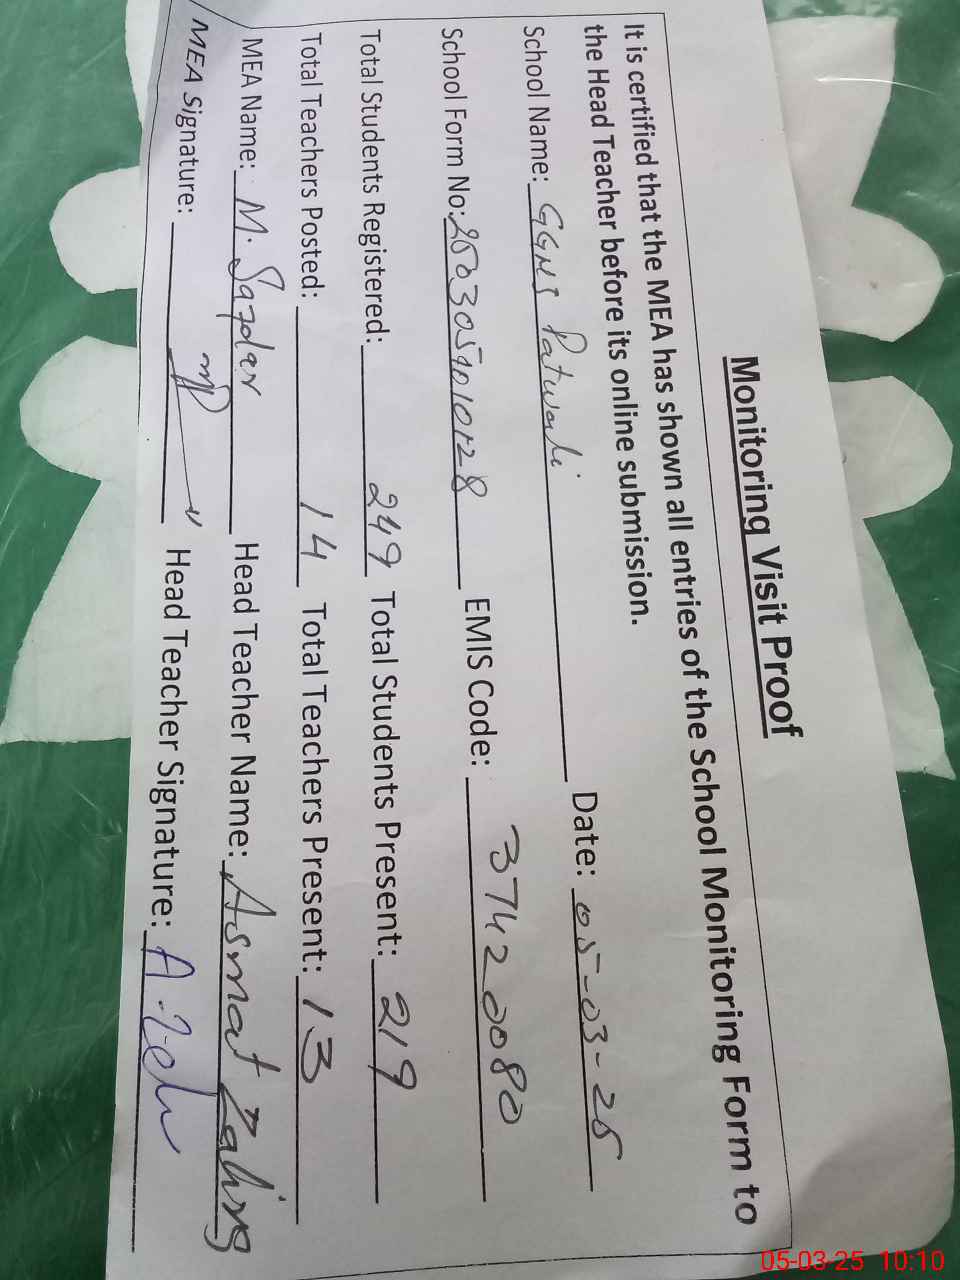 Monitoring Visit Proof
It is certified that the MEA has shown all entries of the School Monitoring Form to
the Head Teacher before its online submission.
School Name: GGHS Patwali Date: 05-03-25
School Form No: EMIS Code: 37420080
Total Students Registered: 249 Total Students Present: 219
Total Teachers Posted: 14 Total Teachers Present: 13
MEA Name: M. Safdar Head Teacher Name: Asmat
MEA Signature: Head Teacher Signature:
05-03-25 10:10